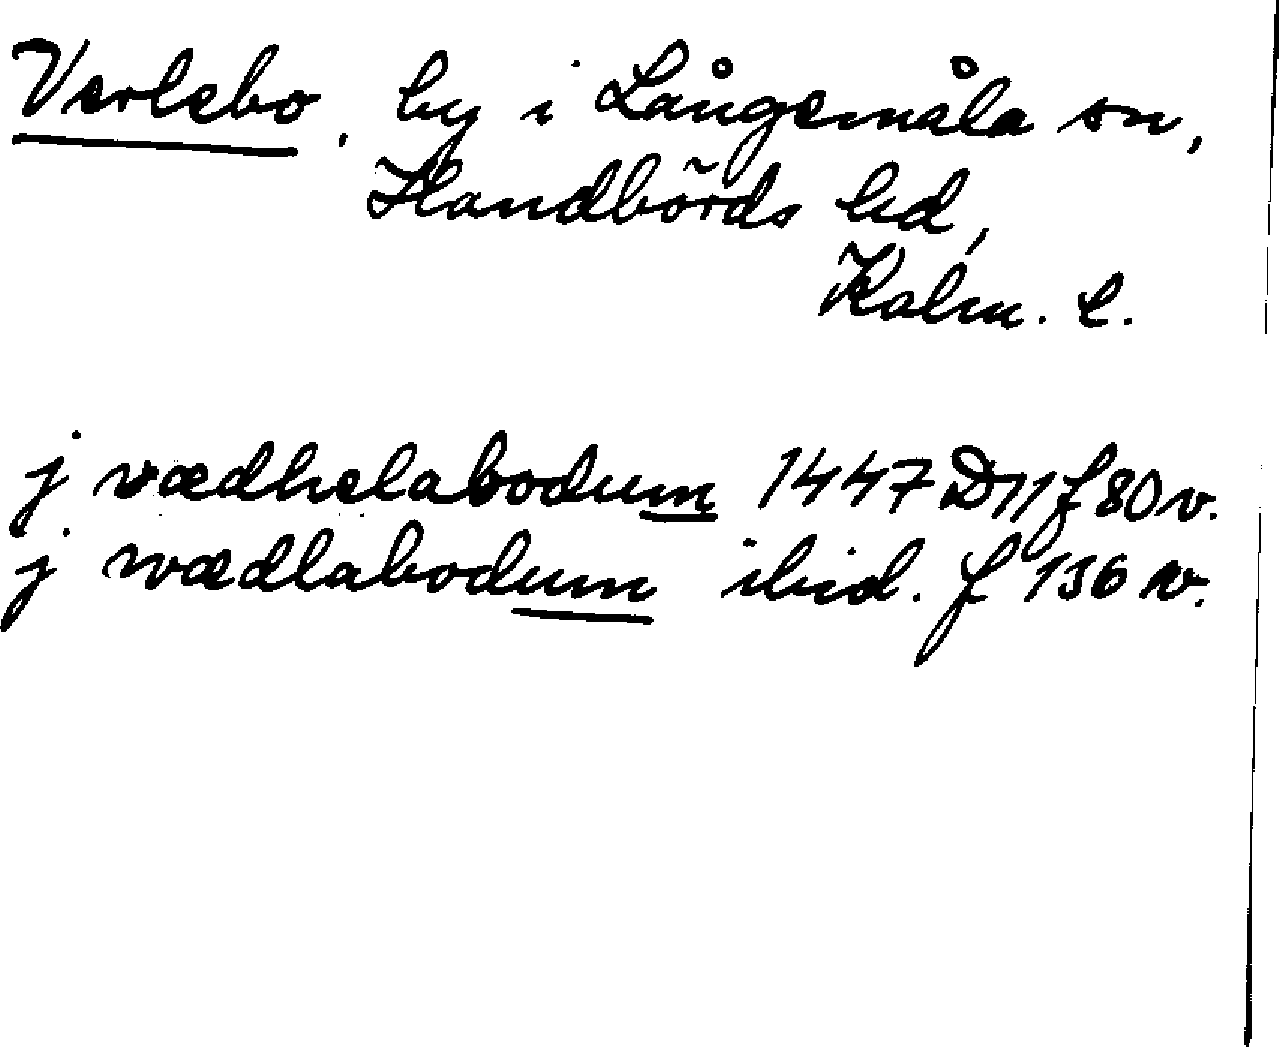 Verlebo, by i Långemåla sn,
Handbörds hd,
Kalm. l.
j vædhelabodum 1447 D11 f 80 v.
j wædlabodum ibid. f 136 v.